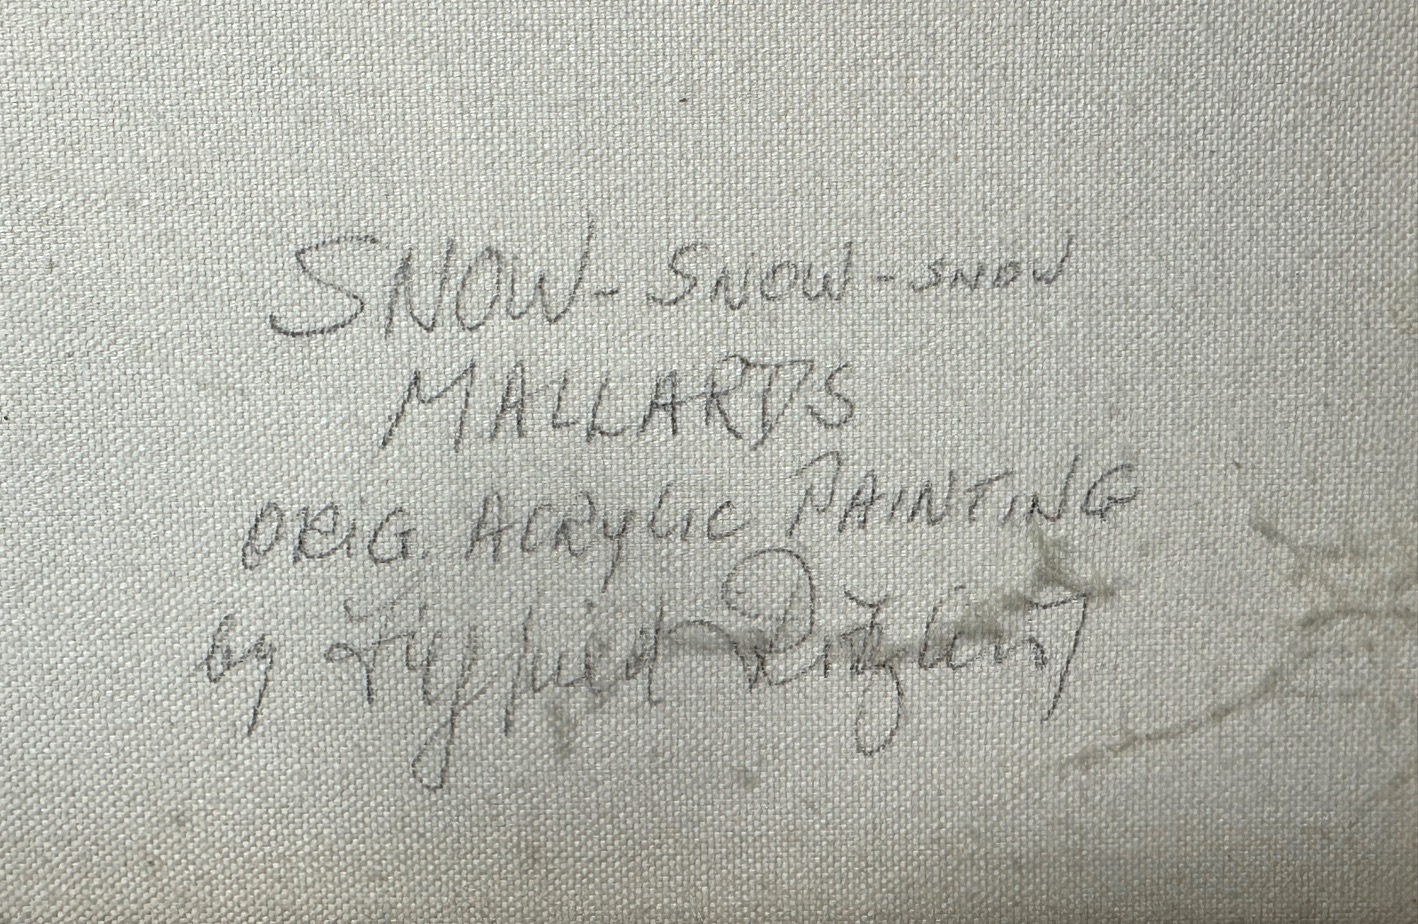 SNOW-SNOW-SNOW
MALLARDS
ORIG. ACRYLIC PAINTING
by